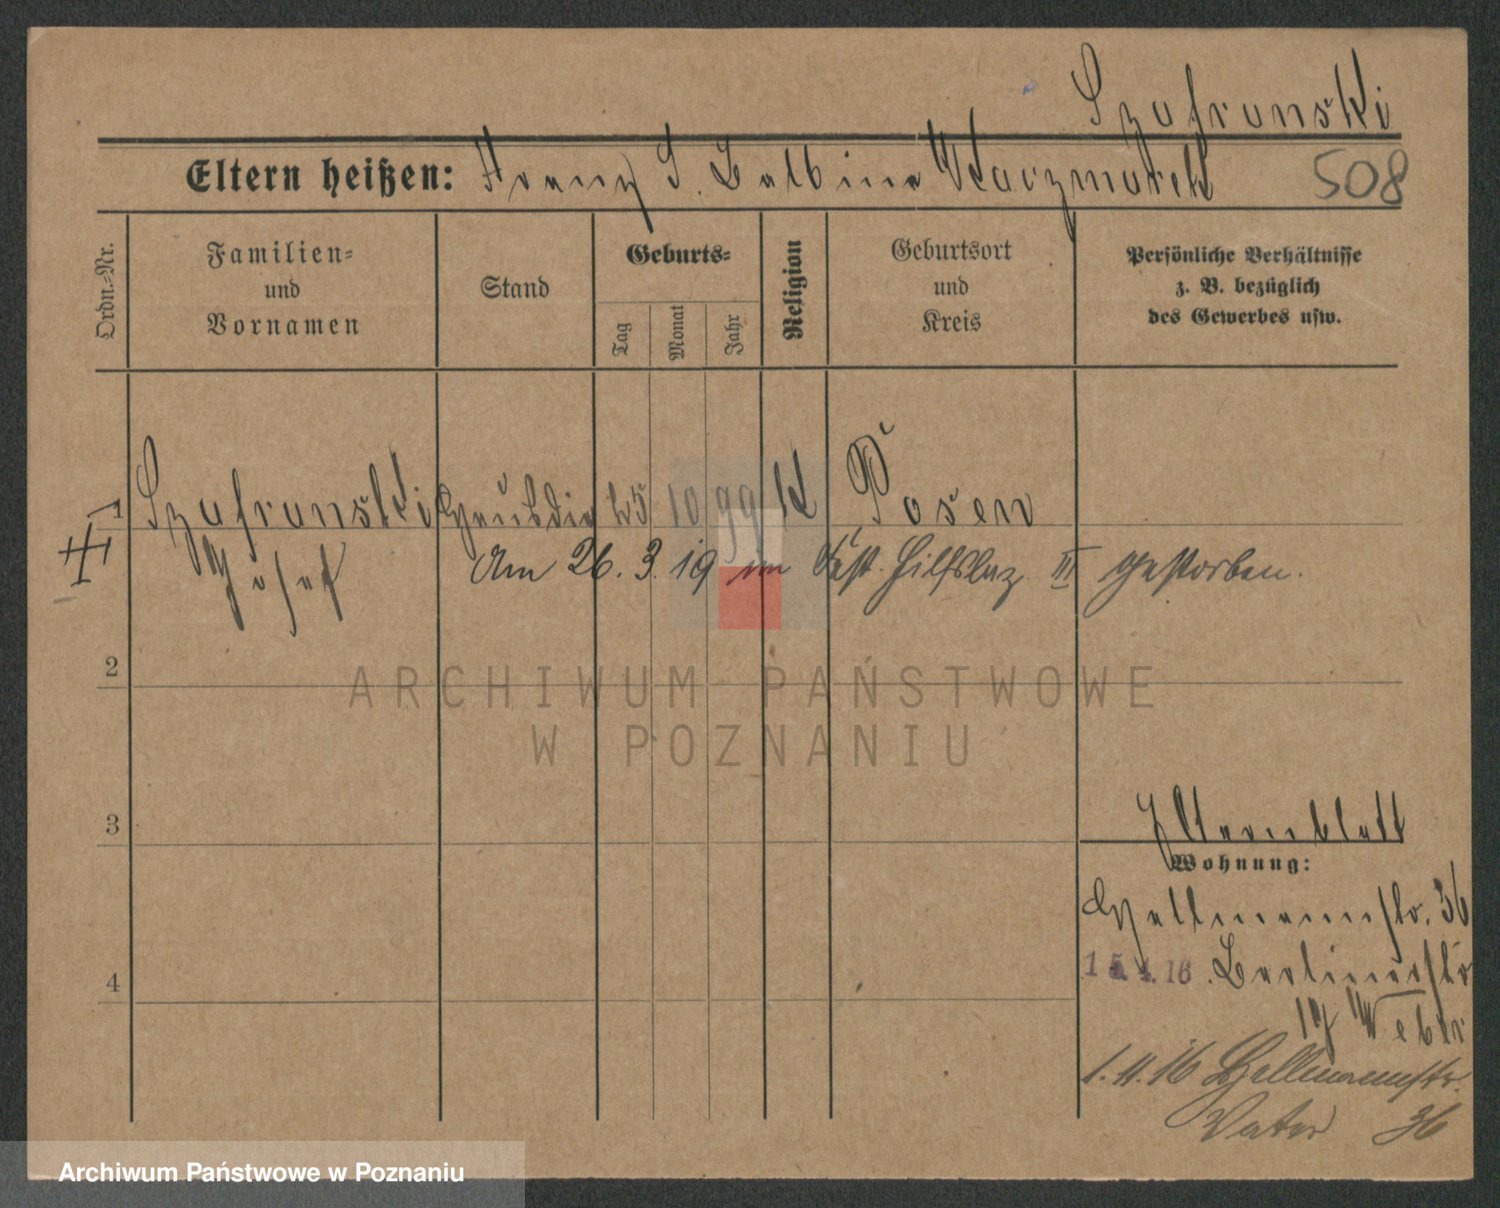 Szafranski
Eltern heißen: Franz S. Balbina Kaczmarek 508
Ordn.-Nr.
Familien- und Vornamen
Stand
Geburts-
Tag
Monat
Jahr
Religion
Geburtsort und Kreis
Persönliche Verhältnisse
z. B. bezüglich
des Gewerbes usw.
1 Szafranski Hausdin 25 10 99 K Posen
Josef Am 26. 3. 19 im Fest. Hilfslaz. III gestorben.
2
3
4
Elternblatt
Wohnung:
Hellmannstr. 36
15.4.16. Berlinerstr
17 Weber
1.11.16 Hellmannstr.
Vater 36
ARCHIWUM PAŃSTWOWE
W POZNANIU
Archiwum Państwowe w Poznaniu